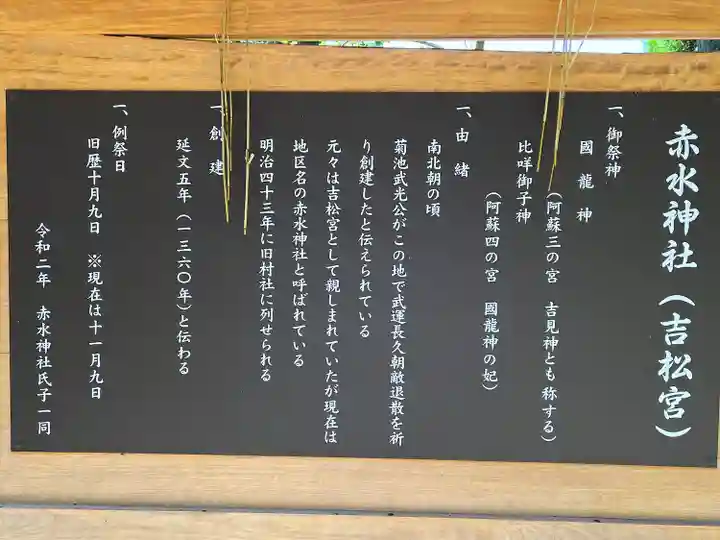 赤水神社（吉松宮）
一、御祭神
國龍神
（阿蘇三の宮　吉見神とも称する）
比咩御子神
（阿蘇四の宮　國龍神の妃）
一、由緒
南北朝の頃
菊池武光公がこの地で武運長久朝敵退散を祈
り創建したと伝えられている
元々は吉松宮として親しまれていたが現在は
地区名の赤水神社と呼ばれている
明治四十三年に旧村社に列せられる
一、創建
延文五年（一三六〇年）と伝わる
一、例祭日
旧歴十月九日　※現在は十一月九日
令和二年　赤水神社氏子一同